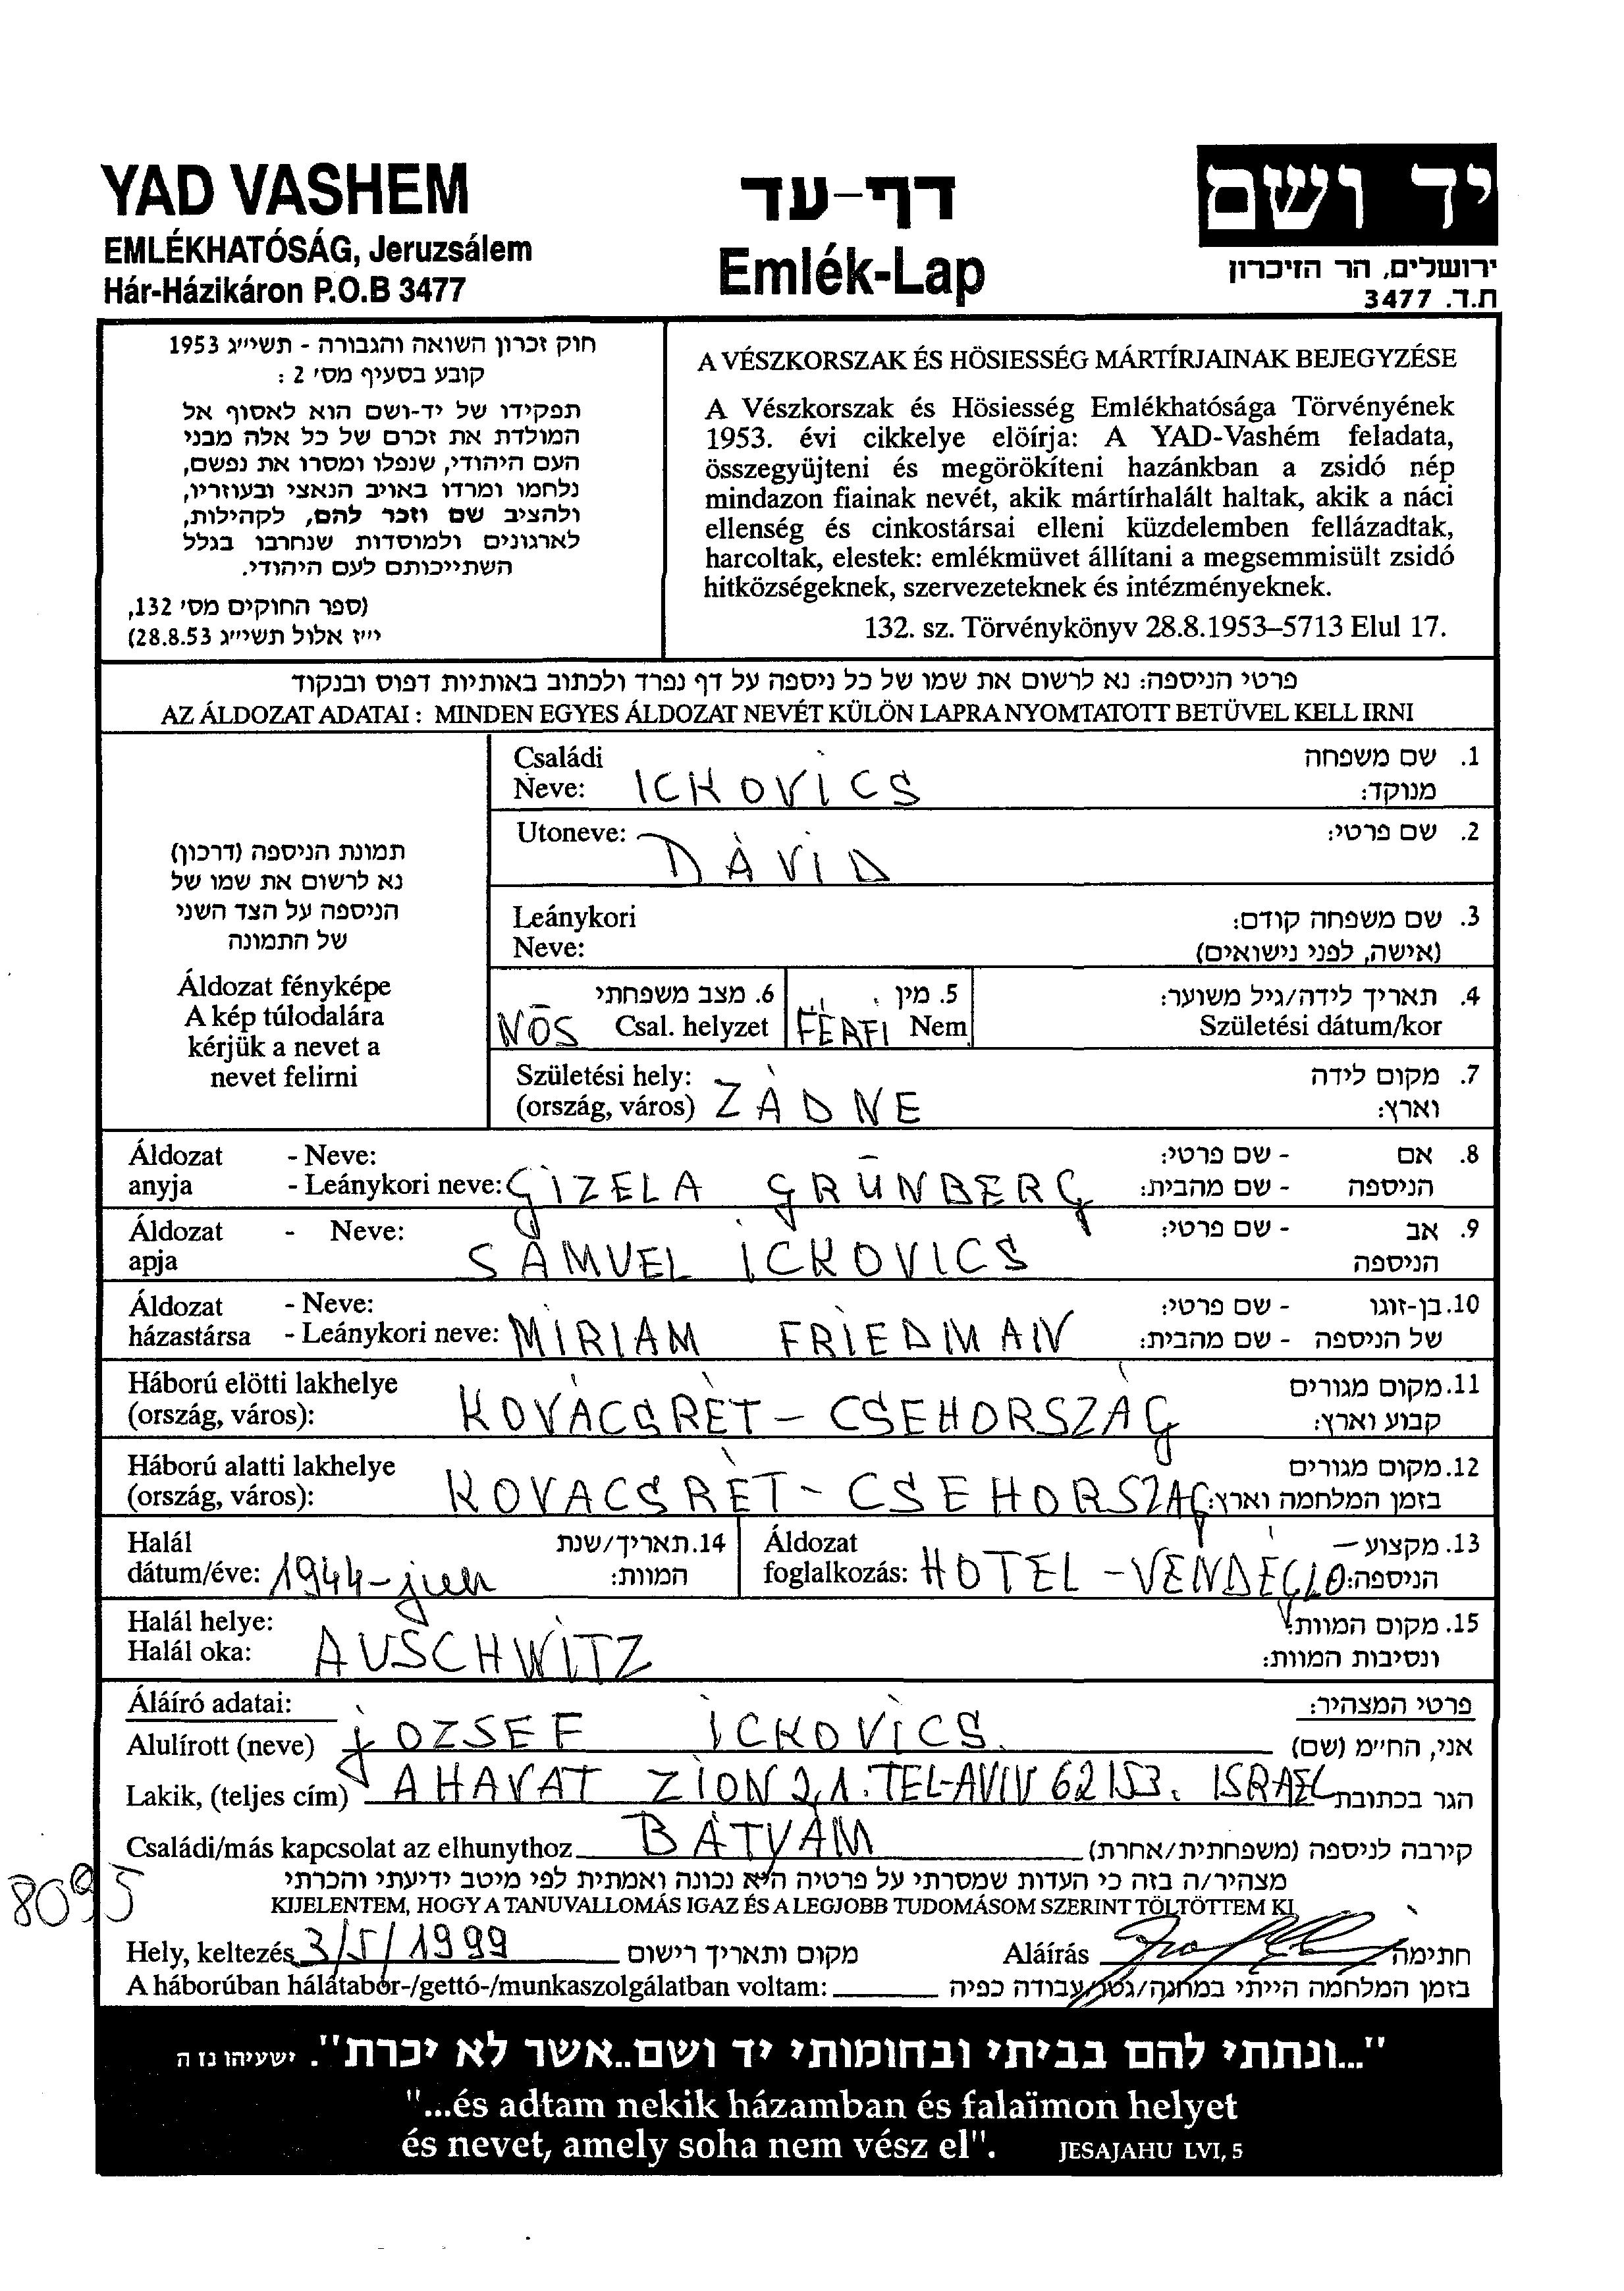 YAD VASHEM
EMLÉKHATÓSÁG, Jeruzsálem
Hár-Házikáron P.O.B 3477
דף-עד
Emlék-Lap
יד ושם
ירושלים, הר הזיכרון
ת.ד. 3477
חוק זכרון השואה והגבורה - תשי״ג 1953
קובע בסעיף מס׳ 2 :
תפקידו של יד-ושם הוא לאסוף אל
המולדת את זכרם של כל אלה מבני
העם היהודי, שנפלו ומסרו את נפשם,
נלחמו ומרדו באויב הנאצי ובעוזריו,
ולהציב שם וזכר להם, לקהילות,
לארגונים ולמוסדות שנחרבו בגלל
השתייכותם לעם היהודי.
(ספר החוקים מס׳ 132,
י״ז אלול תשי״ג 28.8.53)
A VÉSZKORSZAK ÉS HÖSIESSÉG MÁRTÍRJAINAK BEJEGYZÉSE
A Vészkorszak és Hösiesség Emlékhatósága Törvényének
1953. évi cikkelye elöírja: A YAD-Vashém feladata,
összegyüjteni és megörökíteni hazánkban a zsidó nép
mindazon fiainak nevét, akik mártírhalált haltak, akik a náci
ellenség és cinkostársai elleni küzdelemben fellázadtak,
harcoltak, elestek: emlékmüvet állítani a megsemmisült zsidó
hitközségeknek, szervezeteknek és intézményeknek.
132. sz. Törvénykönyv 28.8.1953–5713 Elul 17.
פרטי הניספה: נא לרשום את שמו של כל ניספה על דף נפרד ולכתוב באותיות דפוס ובנקוד
AZ ÁLDOZAT ADATAI : MINDEN EGYES ÁLDOZAT NEVÉT KÜLÖN LAPRA NYOMTATOTT BETÜVEL KELL IRNI
תמונת הניספה (דרכון)
נא לרשום את שמו של
הניספה על הצד השני
של התמונה
Áldozat fényképe
A kép túlodalára
kérjük a nevet a
nevet felirni
Családi 1. שם משפחה
Neve: ICKOVICS מנוקד:
Utoneve: DÁVID 2. שם פרטי:
Leánykori 3. שם משפחה קודם:
Neve: (אישה, לפני נישואים)
6. מצב משפחתי 5. מין 4. תאריך לידה/גיל משוער:
NŐS Csal. helyzet FÉRFI Nem Születési dátum/kor
Születési hely: 7. מקום לידה
(ország, város) ZÁDNE וארץ:
Áldozat - Neve: 8. אם - שם פרטי:
anyja - Leánykori neve: GIZELA GRÜNBERG הניספה - שם מהבית:
Áldozat - Neve: 9. אב - שם פרטי:
apja SÁMUEL ICKOVICS הניספה
Áldozat - Neve: 10. בן-זוגו - שם פרטי:
házastársa - Leánykori neve: MIRIAM FRIEDMAN של הניספה - שם מהבית:
Háború elötti lakhelye 11. מקום מגורים
(ország, város): KOVÁCSRÉT – CSEHORSZÁG קבוע וארץ:
Háború alatti lakhelye 12. מקום מגורים
(ország, város): KOVACSRÉT - CSEHORSZAG בזמן המלחמה וארץ:
Halál 14. תאריך/שנת
dátum/éve: 1944 - jun המוות:
Áldozat 13. מקצוע
foglalkozás: HOTEL - VENDÉGLO הניספה:
Halál helye: 15. מקום המוות:
Halál oka: AUSCHWITZ ונסיבות המוות:
Áláíró adatai: פרטי המצהיר:
Alulírott (neve) JÓZSEF ICKOVICS. אני, החי״מ (שם)
Lakik, (teljes cím) AHAVAT ZION 21. TEL-AVIV 62153. ISRAEL הגר בכתובת
Családi/más kapcsolat az elhunythoz BÁTYÁM קירבה לניספה (משפחתית/אחרת)
8095
מצהיר/ה בזה כי העדות שמסרתי על פרטיה היא נכונה ואמתית לפי מיטב ידיעתי והכרתי
KIJELENTEM, HOGY A TANUVALLOMÁS IGAZ ÉS A LEGJOBB TUDOMÁSOM SZERINT TÖLTÖTTEM KI
Hely, keltezés 3/5/1999 מקום ותאריך רישום Aláírás חתימה
A háborúban hálátabor-/gettó-/munkaszolgálatban voltam: בזמן המלחמה הייתי במחנה/גטו/עבודה כפיה
"...ונתתי להם בביתי ובחומותי יד ושם..אשר לא יכרת". ישעיהו נז ה
"...és adtam nekik házamban és falaïmon helyet
és nevet, amely soha nem vész el". JESAJAHU LVI, 5